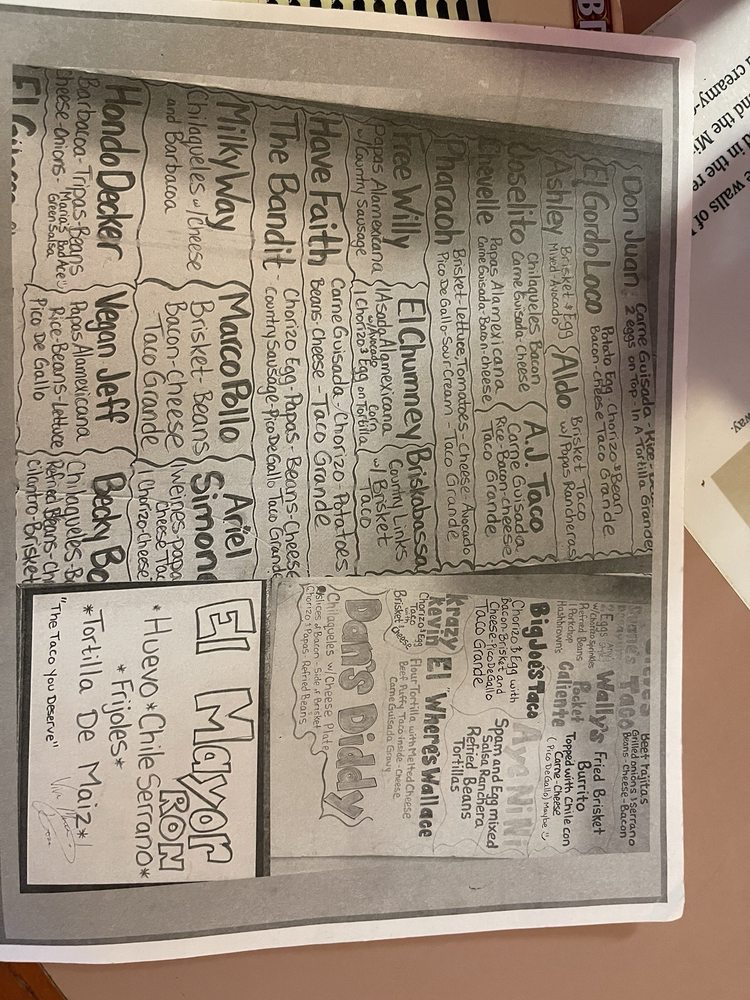 Don Juan Carne Guisada -
2 eggs on Top - In A Tortilla Grande
El Gordo Loco Potato Egg Chorizo & Bean
Bacon - Cheese Taco Grande
Ashley Brisket & Egg
Mixed Avocado
Aldo Brisket Taco
w/ Papas Rancheras
Joselito Chilaqueles Bacon
Carne Guisada Cheese
A.J. Taco
Carne Guisada
Rice-Bacon-Cheese
Taco Grande
Chevelle Papas Alamexicana
Carne Guisada-Bacon-Cheese
Pharaoh Brisket-Lettuce, Tomatoes-Cheese-Avocado
Pico De Gallo-Sour Cream - Taco Grande
Free Willy
Papas Alamexicana
w/ Country Sausage
El Chumney
1 Asada Alamexicana
w/ Avocado
1 Chorizo & Egg on Corn Tortilla
Briskabassa
Country Links
w/ Brisket
Taco
Have Faith Carne Guisada - Chorizo Potatoes
Beans Cheese - Taco Grande
The Bandit - Chorizo Egg-Papas-Beans-Cheese
Country Sausage-Pico De Gallo Taco Grand
Milky Way
Chilaqueles w/ Cheese
and Barbacoa
Marco Pollo
Brisket-Beans
Bacon-Cheese
Taco Grande
Ariel
Simone
Weines-papa
Cheese Tac
1 Chorizo-Cheese
Hondo Decker
Barbacoa-Tripas-Beans
Cheese-Onions-Maria's Bad Ace
Green Salsa
Vegan Jeff
Papas Alamexicana
Rice-Beans-Lettuce
Pico De Gallo
Becky Bo
Chilaqueles-B
Refried Beans-Ch
Cilantro-Brisket
Taco
Beef Fajitas
Grilled onions & serrano
Beans-Cheese-Bacon
2 Eggs
w/ Chorizo Sprinkles
Refried Beans
1 Porkchop
Hashbrowns
Wally's
Pocket
Caliente
Fried Brisket
Burrito
Topped with Chile con
Carne - Cheese
(Pico De Gallo) Maybe
Big Joe's Taco
Chorizo & Egg with
Bacon Brisket and
Cheese-Pico De Gallo
Taco Grande
Aye Ni Ni
Spam and Egg mixed
Salsa Ranchera
Refried Beans
Tortillas
Krazy
Kevin
Chorizo & Egg
Taco
with
Brisket & Cheese
El "Where's Wallace
Flour Tortilla with Melted Cheese
Beef Puffy Taco inside-Cheese
Carne Guisada Gravy
Dan's Diddy
Chilaqueles w/ Cheese Plate
Slices of Bacon - Side of Brisket
Chorizo & Papas Refried Beans
El Mayor
RON
*Huevo*Chile Serrano*
*Frijoles*
*Tortilla De Maiz*
"The Taco You Deserve"